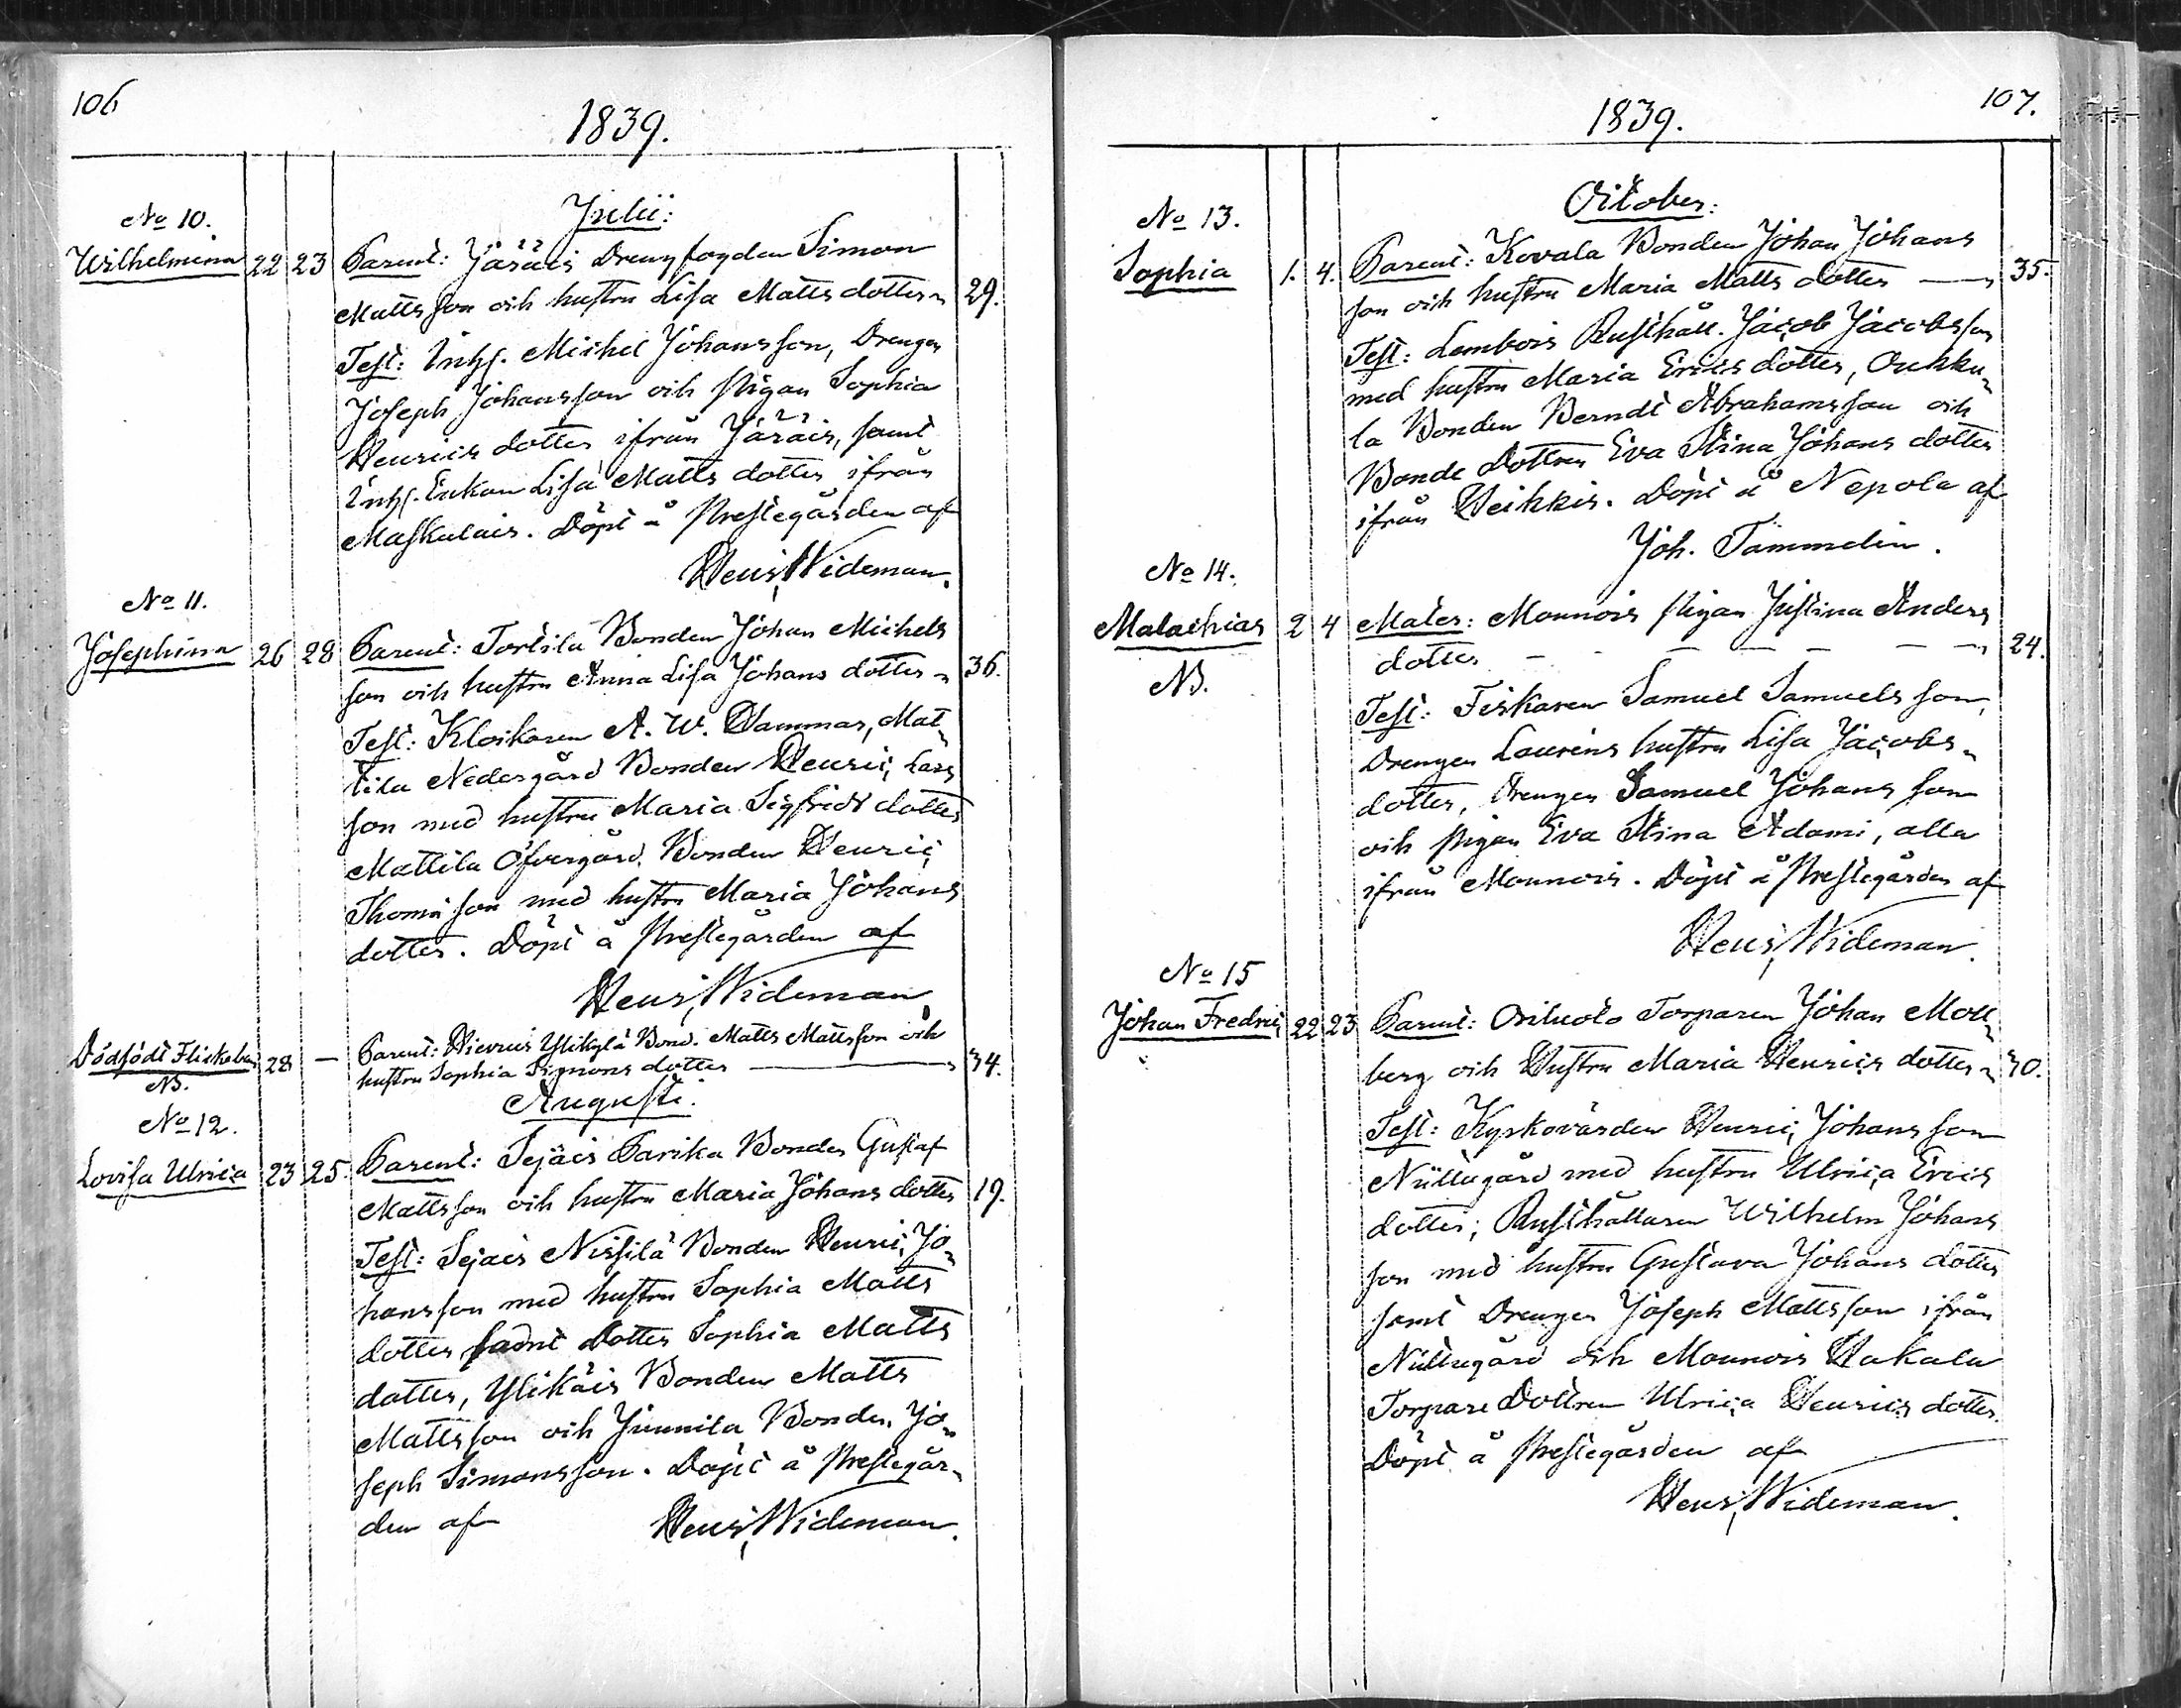 106
1839.
Julii:
No 10.
Wilhelmina 22 23 Parent: Järäis Drengfogden Simon
Mattsson och hustru Lisa Matts dotter 29.
Test: Inhs. Michel Johansson, Drengen
Joseph Johansson och Pigan Sophia
Henrics dotter ifrån Järäis, samt
Inhs. Enkan Lisa Matts dotter ifrån
Maskulais. Döpt å Prestegården af
Henr, Wideman.
No 11.
Josephina 26 28 Parent: Tortila Bonden Johan Michels
son och hustru Anna Lisa Johans dotter 36.
Test: Klockaren A. W. Hammar, Mat-
tila Nedergård Bonden Henric, Lars
son med hustru Maria Sigfrids dotter
Mattila Öfvergård Bonden Henric,
Thomæ son med hustru Maria Johans
dotter. Döpt å Prestegården af
Henr, Wideman
Dödfödt Flickebarn 28 — Parent: Hierois Ylikylä Bond. Matts Mattsson och
NB. hustru Sophia Simons dotter 34.
Augusti.
No 12.
Lovisa Ulrica 23 25. Parent: Sejäis Parika Bonden Gustaf
Mattsson och hustru Maria Johans dotter 19.
Test: Sejäis Nissilä Bonden Henric, Jo-
hansson med hustru Sophia Matts
dotter samt Dotter Sophia Matts
dotter, Ylikäis Bonden Matts
Mattsson och Junnila Bonden Jo-
seph Simonsson. Döpt å Prestegår-
den af Henr, Wideman.
107.
1839.
October:
No 13.
Sophia 1. 4. Parent: Kovala Bonden Johan Johans
son och hustru Maria Matts dotter 35.
Test: Lembois Rusthåll. Jacob Jacobsson
med hustru Maria Erics dotter, Ouhku-
la Bonden Berndt Abrahamsson och
Bonde Dottren Eva Stina Johans dotter
ifrån Heikkis. Döpt å Nepola af
Joh. Tammelin.
No 14.
Malachias 2 4 Mater: Monnois Pigan Justina Anders
NB. dotter 24.
Test: Fiskaren Samuel Samuels son,
Drengen Laurens hustru Lisa Jacobs-
dotter, Drengen Samuel Johans son
och Pigan Eva Stina Adami, alla
ifrån Monnois. Döpt å Prestegården af
Henr, Wideman.
No 15
Johan Fredric, 22 23 Parent: Torparen Johan Moll-
berg och Hustru Maria Henrics dotter 30.
Test: Kyrkovärden Henric, Johans son
Nüttugård med hustru Ulrica Erics
dotter; Rusthållaren Wilhelm Johans
son med hustru Gustava Johans dotter
samt Drengen Joseph Mattsson ifrån
Nüttugård och Monnois Hakala
Torpare Dottren Ulrica Henrics dotter.
Döpt å Prestegården af
Henr, Wideman.